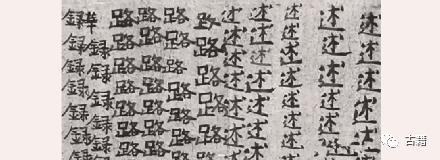 述述述述述
述述述述述述
述述述述述述述
述述述述述述
述述述述述述述
路路路路路路
路路路路路路
路路路路路路路
路路路路路路路
華録録録録録
録録録録録録
古籍